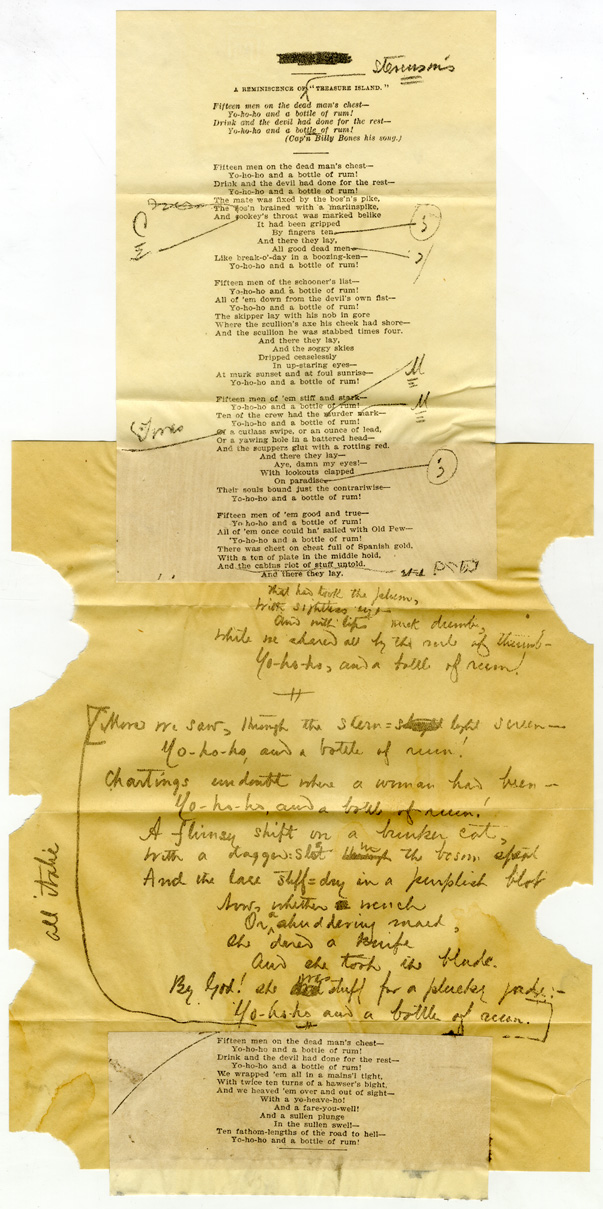 Stevenson's
A REMINISCENCE OF "TREASURE ISLAND."
Fifteen men on the dead man's chest—
Yo-ho-ho and a bottle of rum!
Drink and the devil had done for the rest—
Yo-ho-ho and a bottle of rum!
(Cap'n Billy Bones his song.)
Fifteen men on the dead man's chest—
Yo-ho-ho and a bottle of rum!
Drink and the devil had done for the rest—
Yo-ho-ho and a bottle of rum!
The mate was fixed by the bos'n's pike,
The bos'n brained with a marlinspike,
And cookey's throat was marked belike
C
It had been gripped
By fingers ten
;
And there they lay,
All good dead men
Like break-o'-day in a boozing-ken—
Yo-ho-ho and a bottle of rum!
Fifteen men of the schooner's list—
Yo-ho-ho and a bottle of rum!
All of 'em down from the devil's own fist—
Yo-ho-ho and a bottle of rum!
The skipper lay with his nob in gore
Where the scullion's axe his cheek had shore—
And the scullion he was stabbed times four.
And there they lay,
And the soggy skies
Dripped ceaselessly
In up-staring eyes—
At murk sunset and at foul sunrise—
Yo-ho-ho and a bottle of rum!
M
Fifteen men of 'em stiff and stark—
Yo-ho-ho and a bottle of rum!
M
Ten of the crew had the murder mark—
Yo-ho-ho and a bottle of rum!
'Twas
Of a cutlass swipe, or an ounce of lead,
Or a yawing hole in a battered head—
And the scuppers glut with a rotting red.
And there they lay—
Aye, damn my eyes!—
With lookouts clapped
;
On paradise
Their souls bound just the contrariwise—
Yo-ho-ho and a bottle of rum!
Fifteen men of 'em good and true—
Yo-ho-ho and a bottle of rum!
All of 'em once could ha' sailed with Old Pew—
Yo-ho-ho and a bottle of rum!
There was chest on chest full of Spanish gold,
With a ton of plate in the middle hold,
And the cabins riot of stuff untold.
And there they lay,
that had took the plum,
With sightless eyes
And with lips struck dumb,
While we shared all by the rule of thumb—
Yo-ho-ho, and a bottle of rum!
More we saw, through the stern=light screen—
Yo-ho-ho, and a bottle of rum!
Chartings undoubt where a woman had been—
Yo-ho-ho, and a bottle of rum!
A flimsy shift on a bunker cot,
With a dagger=slot in the bosom spot
And the lace stiff=dry in a purplish blot
Now, whether wench
Or a shuddering maid,
She dared a knife
And she took the blade.
By God! she was stuff for a plucky jade:—
Yo-ho-ho and a bottle of rum.
all italic
Fifteen men on the dead man's chest—
Yo-ho-ho and a bottle of rum!
Drink and the devil had done for the rest—
Yo-ho-ho and a bottle of rum!
We wrapped 'em all in a mains'l tight,
With twice ten turns of a hawser's bight,
And we heaved 'em over and out of sight—
With a yo-heave-ho!
And a fare-you-well!
And a sullen plunge
In the sullen swell—
Ten fathom-lengths of the road to hell—
Yo-ho-ho and a bottle of rum!